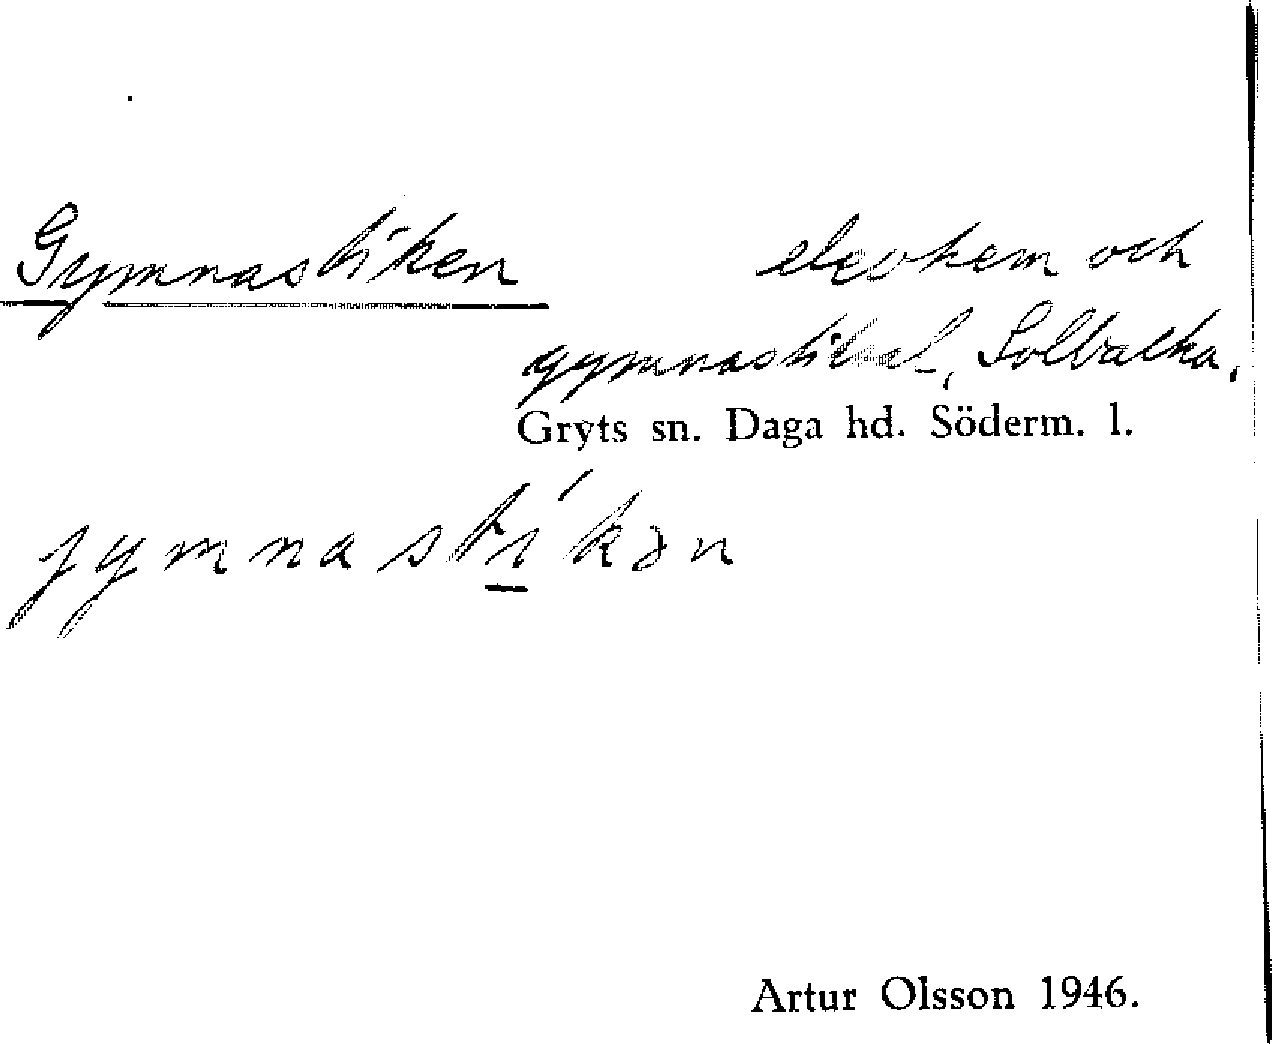 Gymnastiken elevhem och
gymnastiksal, Solbacka,
Gryts sn. Daga hd. Söderm. l.
jymnastíkən
Artur Olsson 1946.